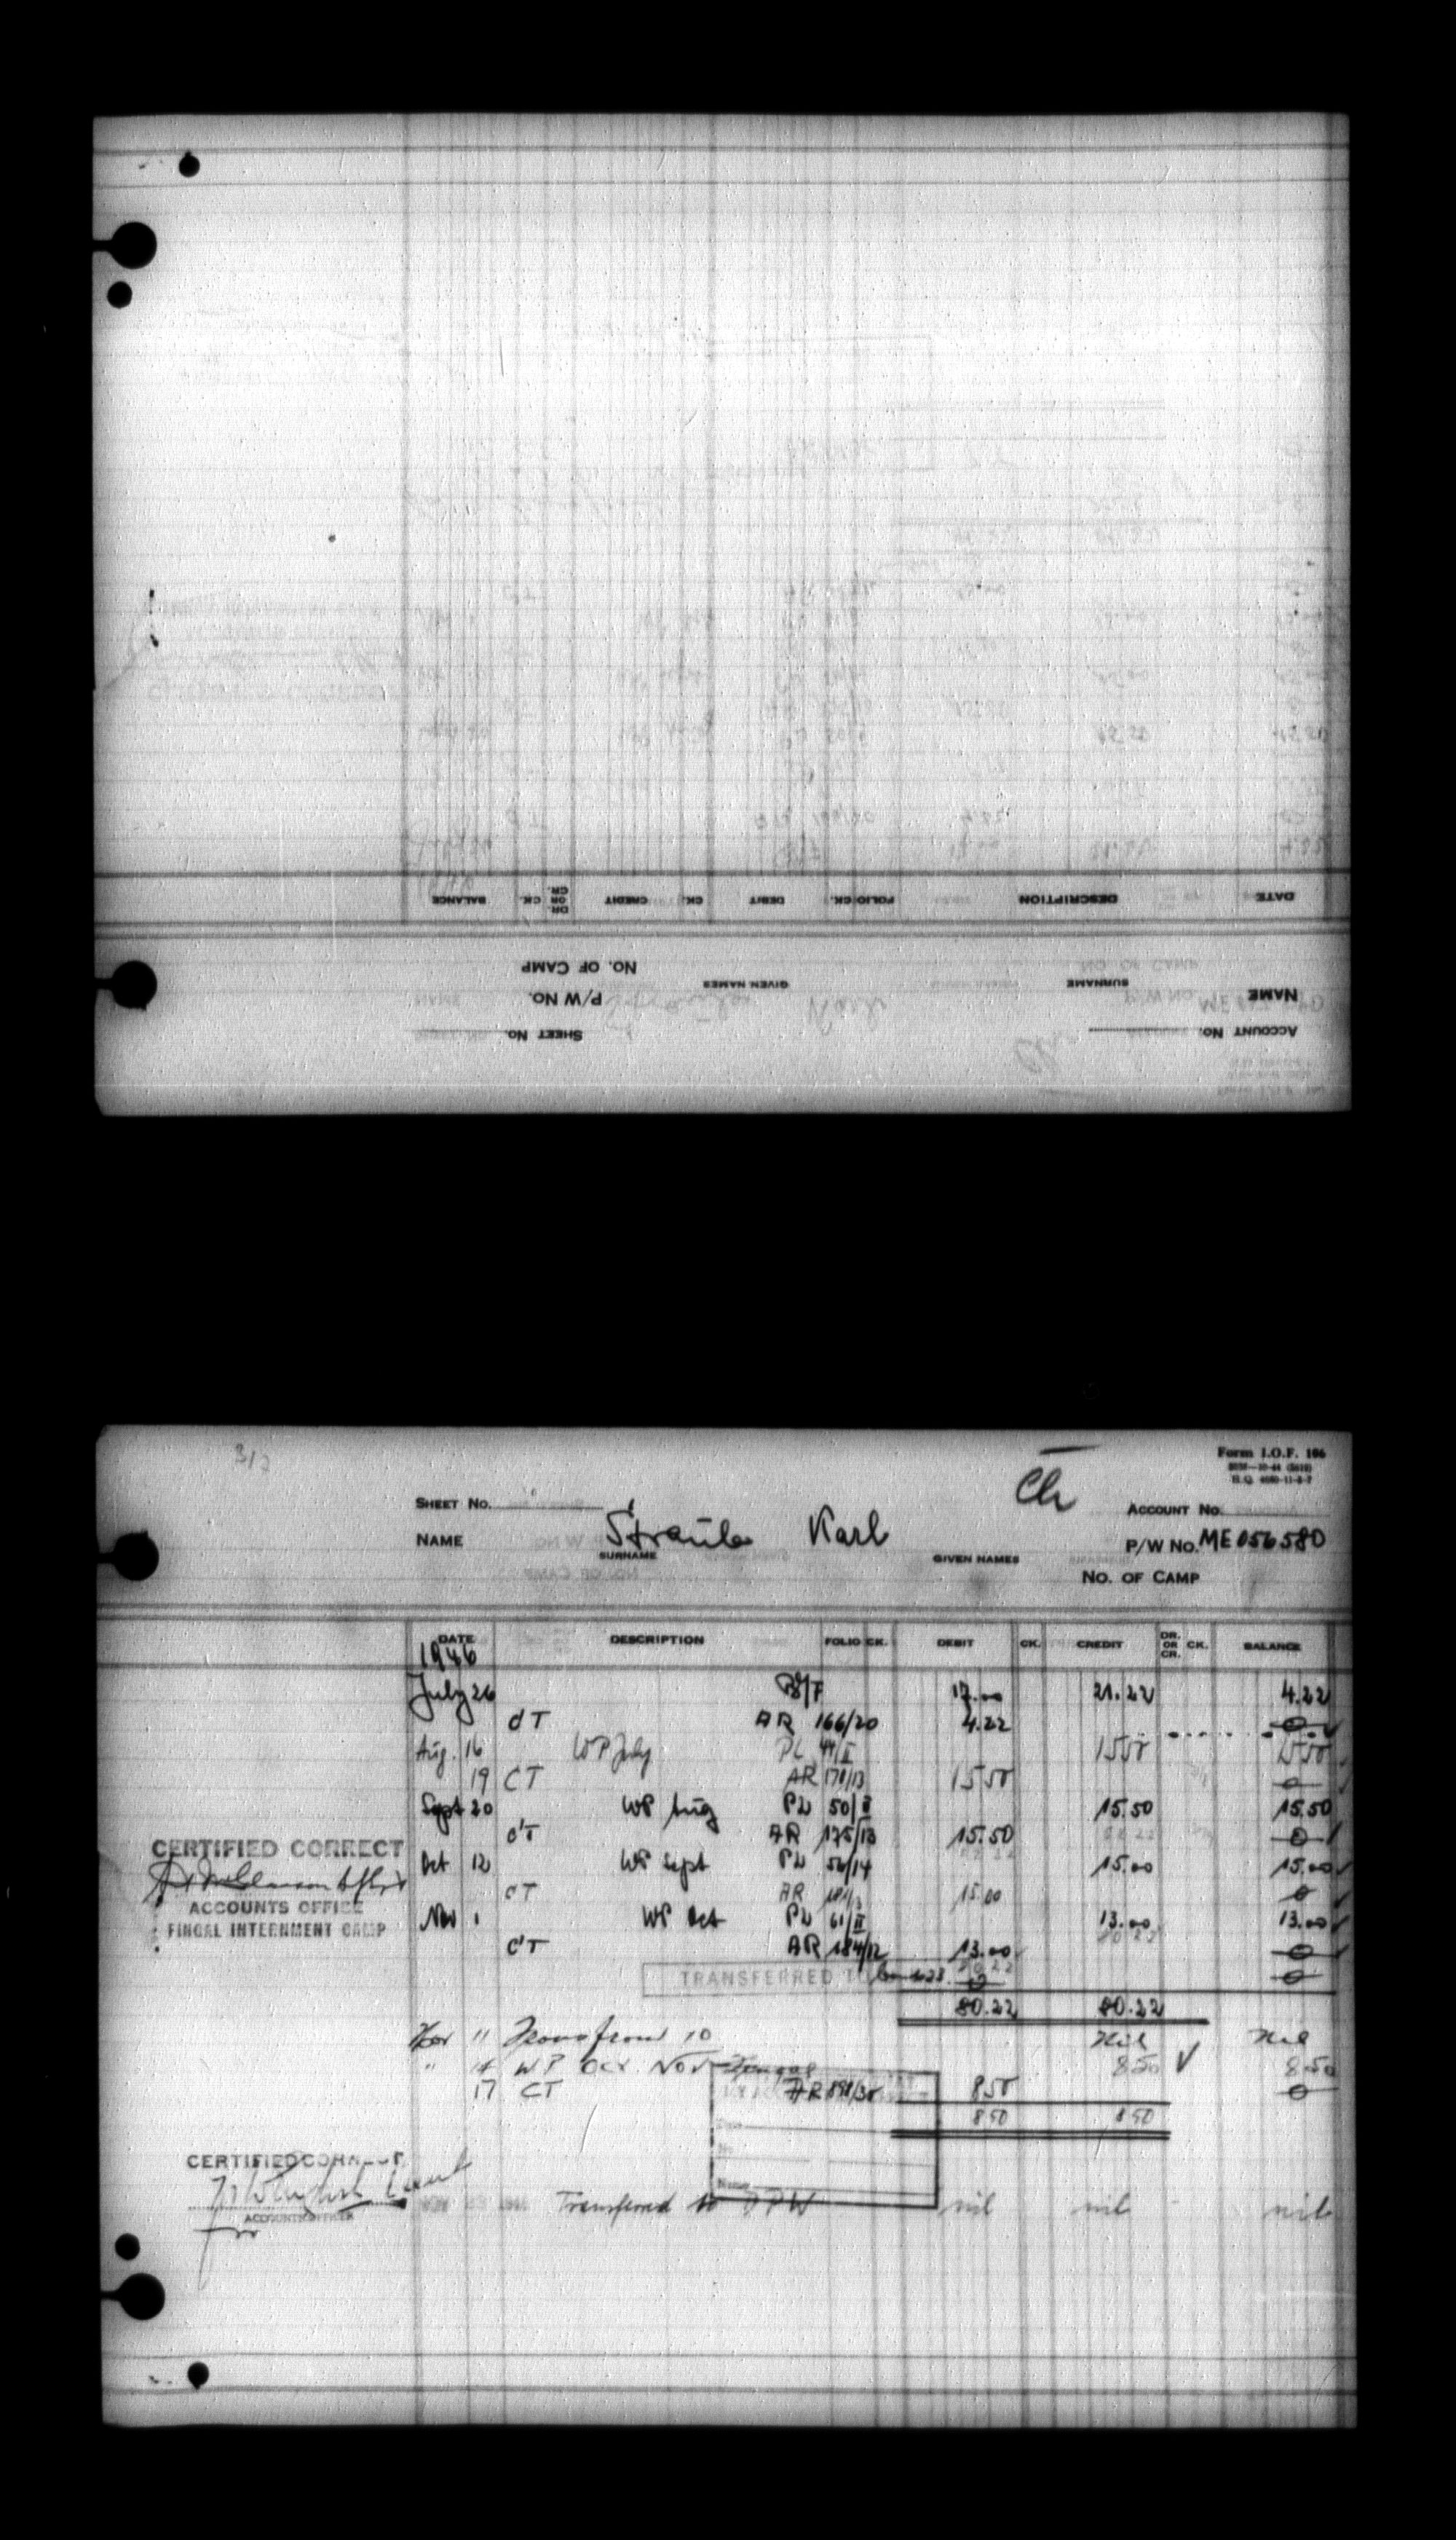 DATE DESCRIPTION FOLIO CK. DEBIT CK. CREDIT DR. OR CR. CK. BALANCE
NAME SURNAME GIVEN NAMES P/W NO.
NO. OF CAMP
ACCOUNT NO. SHEET NO.
Form I.O.F. 106
SHEET NO. Ch ACCOUNT NO.
NAME Straube Karl P/W NO. ME 056580
SURNAME GIVEN NAMES
NO. OF CAMP
DATE DESCRIPTION FOLIO CK. DEBIT CK. CREDIT DR. OR CR. CK. BALANCE
1946
July 26 B/F 17.00 21.22 4.22
CT AR 166/20 4.22 0
Aug. 16 WP July PL 44/II 15.50 15.50
19 CT AR 170/13 15.50 0
Sept 20 WP Aug PL 50/II 15.50 15.50
CT AR 175/13 15.50 0
Oct 12 WP Sept PL 56/14 15.00 15.00
CT AR 15.00 0
Nov 1 WP Oct PL 61/II 13.00 13.00
CT AR 184/12 13.00 0
TRANSFERRED TO 0 0
80.22 80.22
Nov 11 from 10 Nil Nil
" 14 WP Oct Nov 8.50 8.50
17 CT AR 898/35 8.50 0
8.50 8.50
Transferred to DPW nil nil nil
CERTIFIED CORRECT
ACCOUNTS OFFICE
FINGAL INTERNMENT CAMP
CERTIFIED CORRECT
ACCOUNTS OFFICER
for